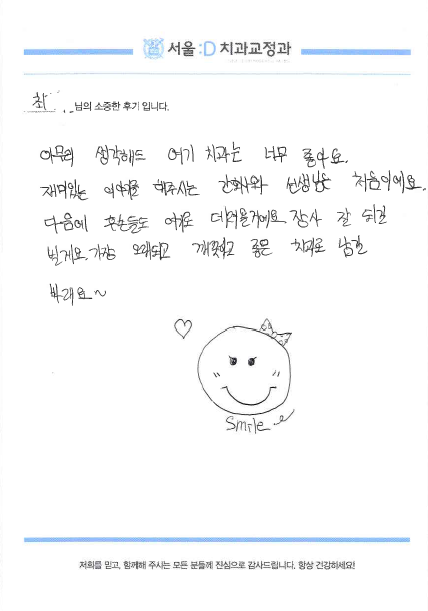 서울 :D 치과교정과
최 님의 소중한 후기 입니다.
아무리 생각해도 여기 치과는 너무 좋아요.
재미있는 이야기를 해주시는 간호사와 선생님은 처음이에요.
다음에 후손들도 여기로 데려올거에요. 장사 잘 되길
빌게요. 가장 오래되고 깨끗하고 좋은 치과로 남길
바래요~
Smile
저희를 믿고, 함께해 주시는 모든 분들께 진심으로 감사드립니다. 항상 건강하세요!